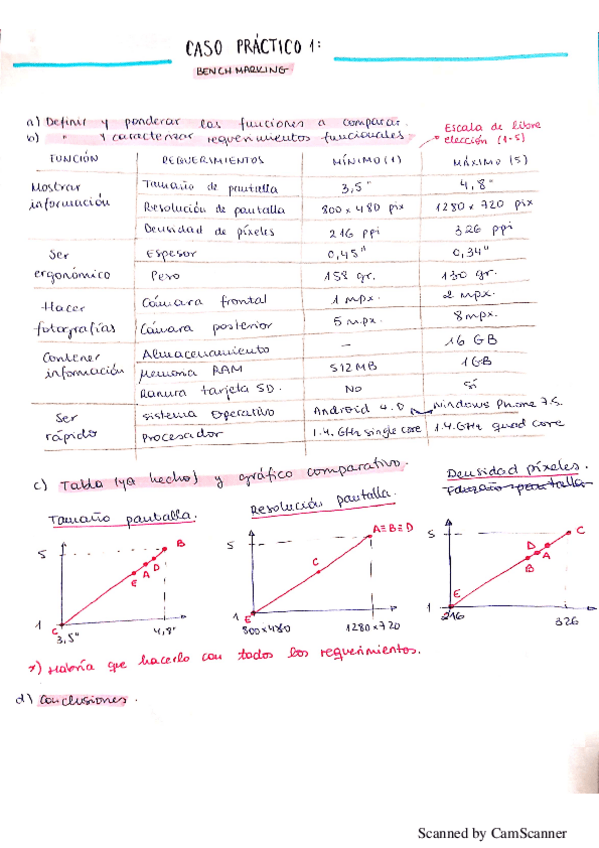 CASO PRÁCTICO 1:
BENCHMARKING
a) Definir y ponderar las funciones a comparar.
b) " y caracterizar requerimientos funcionales
Escala de libre
elección (1-5)
FUNCIÓN REQUERIMIENTOS MÍNIMO (1) MÁXIMO (5)
Mostrar información
Tamaño de pantalla 3,5" 4,8"
Resolución de pantalla 800 x 480 pix 1280 x 720 pix
Densidad de píxeles 216 ppi 326 ppi
Ser ergonómico
Espesor 0,45" 0,34"
Peso 158 gr. 130 gr.
Hacer fotografías
Cámara frontal 1 mpx. 2 mpx.
Cámara posterior 5 mpx. 8 mpx.
Contener información
Almacenamiento - 16 GB
Memoria RAM 512 MB 1 GB
Ranura tarjeta SD. NO Sí
Ser rápido
Sistema Operativo Android 4.0 Windows Phone 7.5.
Procesador 1.4. GHz single core 1.4. GHz quad core
c) Tabla (ya hecho) y gráfico comparativo.
Tamaño pantalla.
5
1
C
E
A
D
B
3,5"
4,8"
Resolución pantalla.
5
1
E
C
A≡B≡D
800x480
1280x720
Densidad píxeles.
Tamaño pantalla
5
1
E
B
D
A
C
216
326
*) Habría que hacerlo con todos los requerimientos.
d) Conclusiones.
Scanned by CamScanner